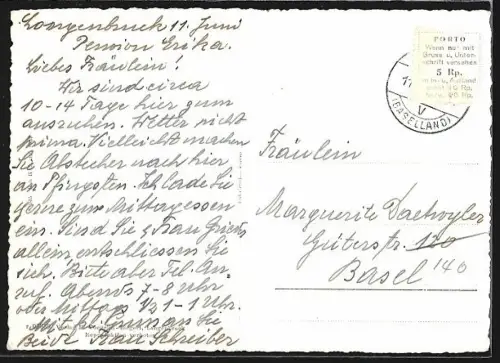 Langenbruck 11. Juni
Pension Erika.
Liebes Fräulein!
Wir sind circa
10-14 Tage hier zum
ausruhen. Wetter nicht
prima. Vielleicht machen
Sie Abstecher nach hier
an Pfingsten. Ich lade Sie
gerne zum Mittagessen
ein. Sind Sie z Frau
allein, entschliessen Sie
sich. Bitte aber Tel. An-
ruf. Abends 7-8 Uhr
oder mittags ½1-1 Uhr.
Grüssen Sie
Beide Frau Schreiber
PORTO
Wenn nur mit
Gruss u. Unter-
schrift versehen
5 Rp.
(BASELLAND)
Fräulein
Marguerite Daetwyler
Güterstr. 120
140
Basel